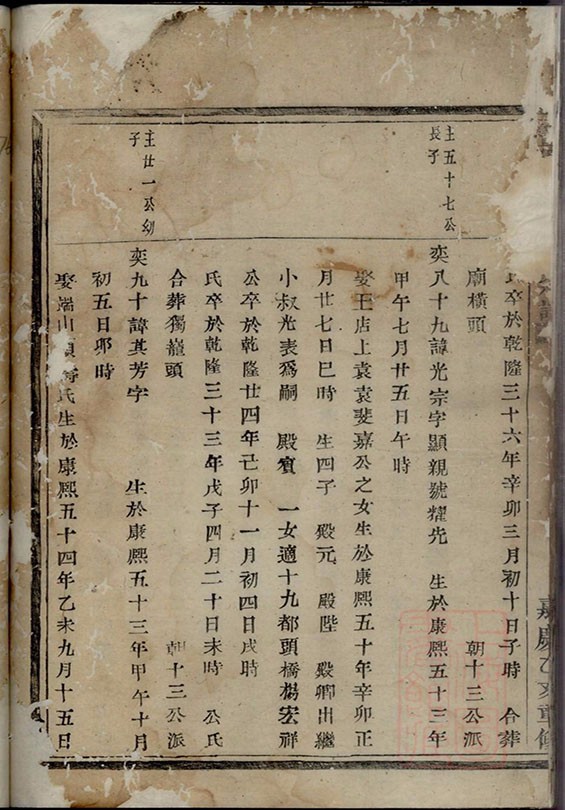 氏卒於乾隆三十六年辛卯三月初十日子時 合葬
廟橫頭 朝十三公派
主五十七公
長子
奕八十九諱光宗字顯親號耀先 生於康熙五十三年
甲午七月廿五日午時
娶王店上袁袁斐嘉公之女生於康熙五十年辛卯正
月廿七日巳時 生四子 殿元 殿陛 殿卿出繼
小叔光表爲嗣 殿賓 一女適十九都頭橋楊宏祥
公卒於乾隆廿四年己卯十一月初四日戌時
氏卒於乾隆三十三年戊子四月二十日未時 公氏
合葬獨龍頭 朝十三公派
主廿一公幼
子
奕九十諱其芳字 生於康熙五十三年甲午十月
初五日卯時
娶端山 氏生於康熙五十四年乙未九月十五日
嘉慶乙亥重脩